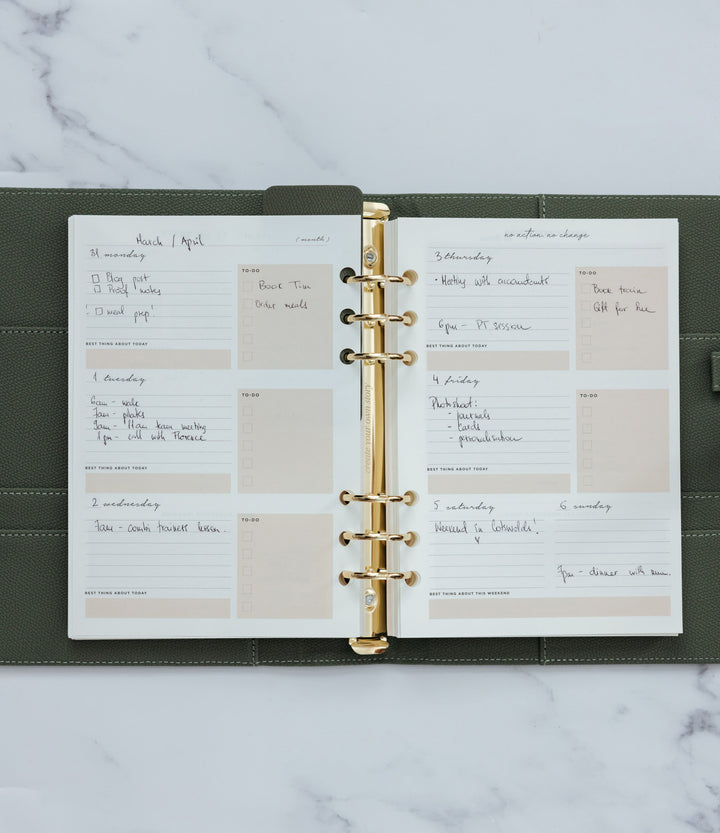 March / April
(month)
31 monday
Blog post
Proof notes
! meal prep!
TO-DO
Book Tim
Order meals
BEST THING ABOUT TODAY
1 tuesday
6am - wake
7am - pilates
9am - 11am team meeting
1pm - call with Florence
TO-DO
BEST THING ABOUT TODAY
2 wednesday
7am - combi trainers lesson.
TO-DO
BEST THING ABOUT TODAY
create your own story
no action, no change
3 thursday
• Meeting with accountants
6pm - PT session
TO-DO
Book train
Gift for
BEST THING ABOUT TODAY
4 friday
Photoshoot:
- journals
- cards
- personalisation
TO-DO
BEST THING ABOUT TODAY
5 saturday
Weekend in Cotswolds!
6 sunday
7pm - dinner with mum.
BEST THING ABOUT THIS WEEKEND